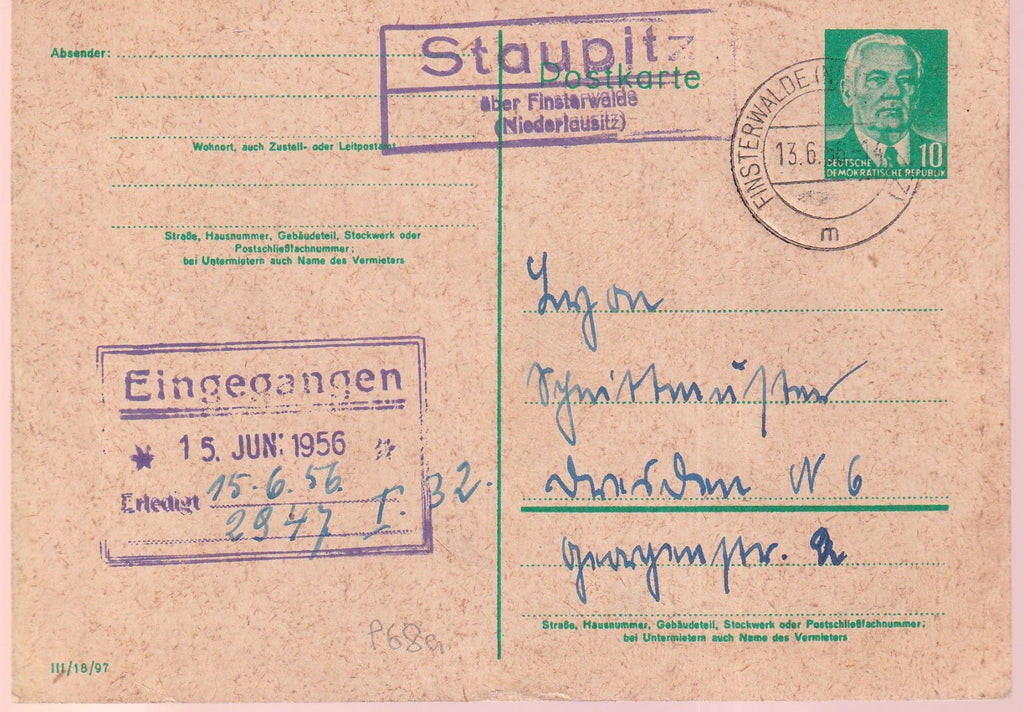 Absender:
Wohnort, auch Zustell- oder Leitpostamt
Straße, Hausnummer, Gebäudeteil, Stockwerk oder
Postschließfachnummer;
bei Untermietern auch Name des Vermieters
Staupitz
über Finsterwalde
(Niederlausitz)
Postkarte
FINSTERWALDE
13.6.
m
DEUTSCHE
DEMOKRATISCHE REPUBLIK
10
Eingegangen
15. JUN. 1956
Erledigt 15.6.56.
2947 32.
Schnittmuster
Dresden N 6
Georgenstr. 2
Straße, Hausnummer, Gebäudeteil, Stockwerk oder Postschließfachnummer;
bei Untermietern auch Name des Vermieters
P68a
III/18/97